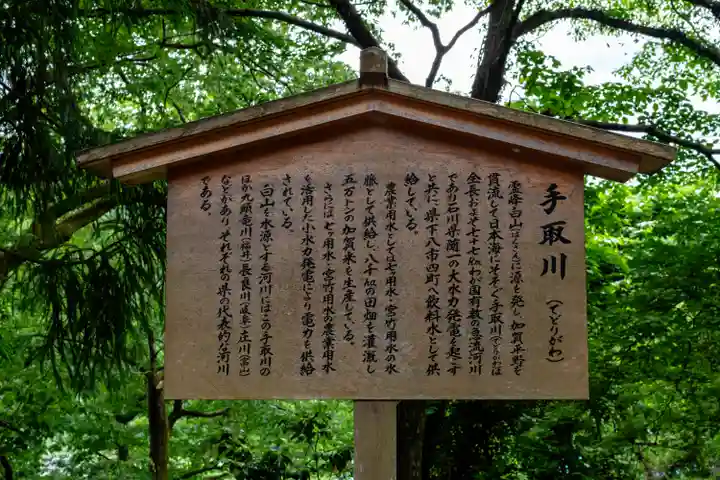 手取川
(てどりがわ)
霊峰白山はるかに源を発し、加賀平野を
貫流して日本海にそそぐ手取川(てどりがわ)は
全長およそ七十七㎞わが国有数の急流河川
であり石川県随一の大水力発電を起こす
と共に県下八市四町へ飲料水として供
給している。
農業用水としては七ヶ用水・宮竹用水の水
脈として供給し、八千㏊の田畑を灌漑し
五万トンの加賀米を生産している。
さらには七ヶ用水・宮竹用水の農業用水
を活用した小水力発電により電力を供給
されている。
白山を水源とする河川にはこの手取川の
ほか九頭竜川(福井)長良川(岐阜)庄川(富山)
などがあり、それぞれの県の代表的な河川
である。